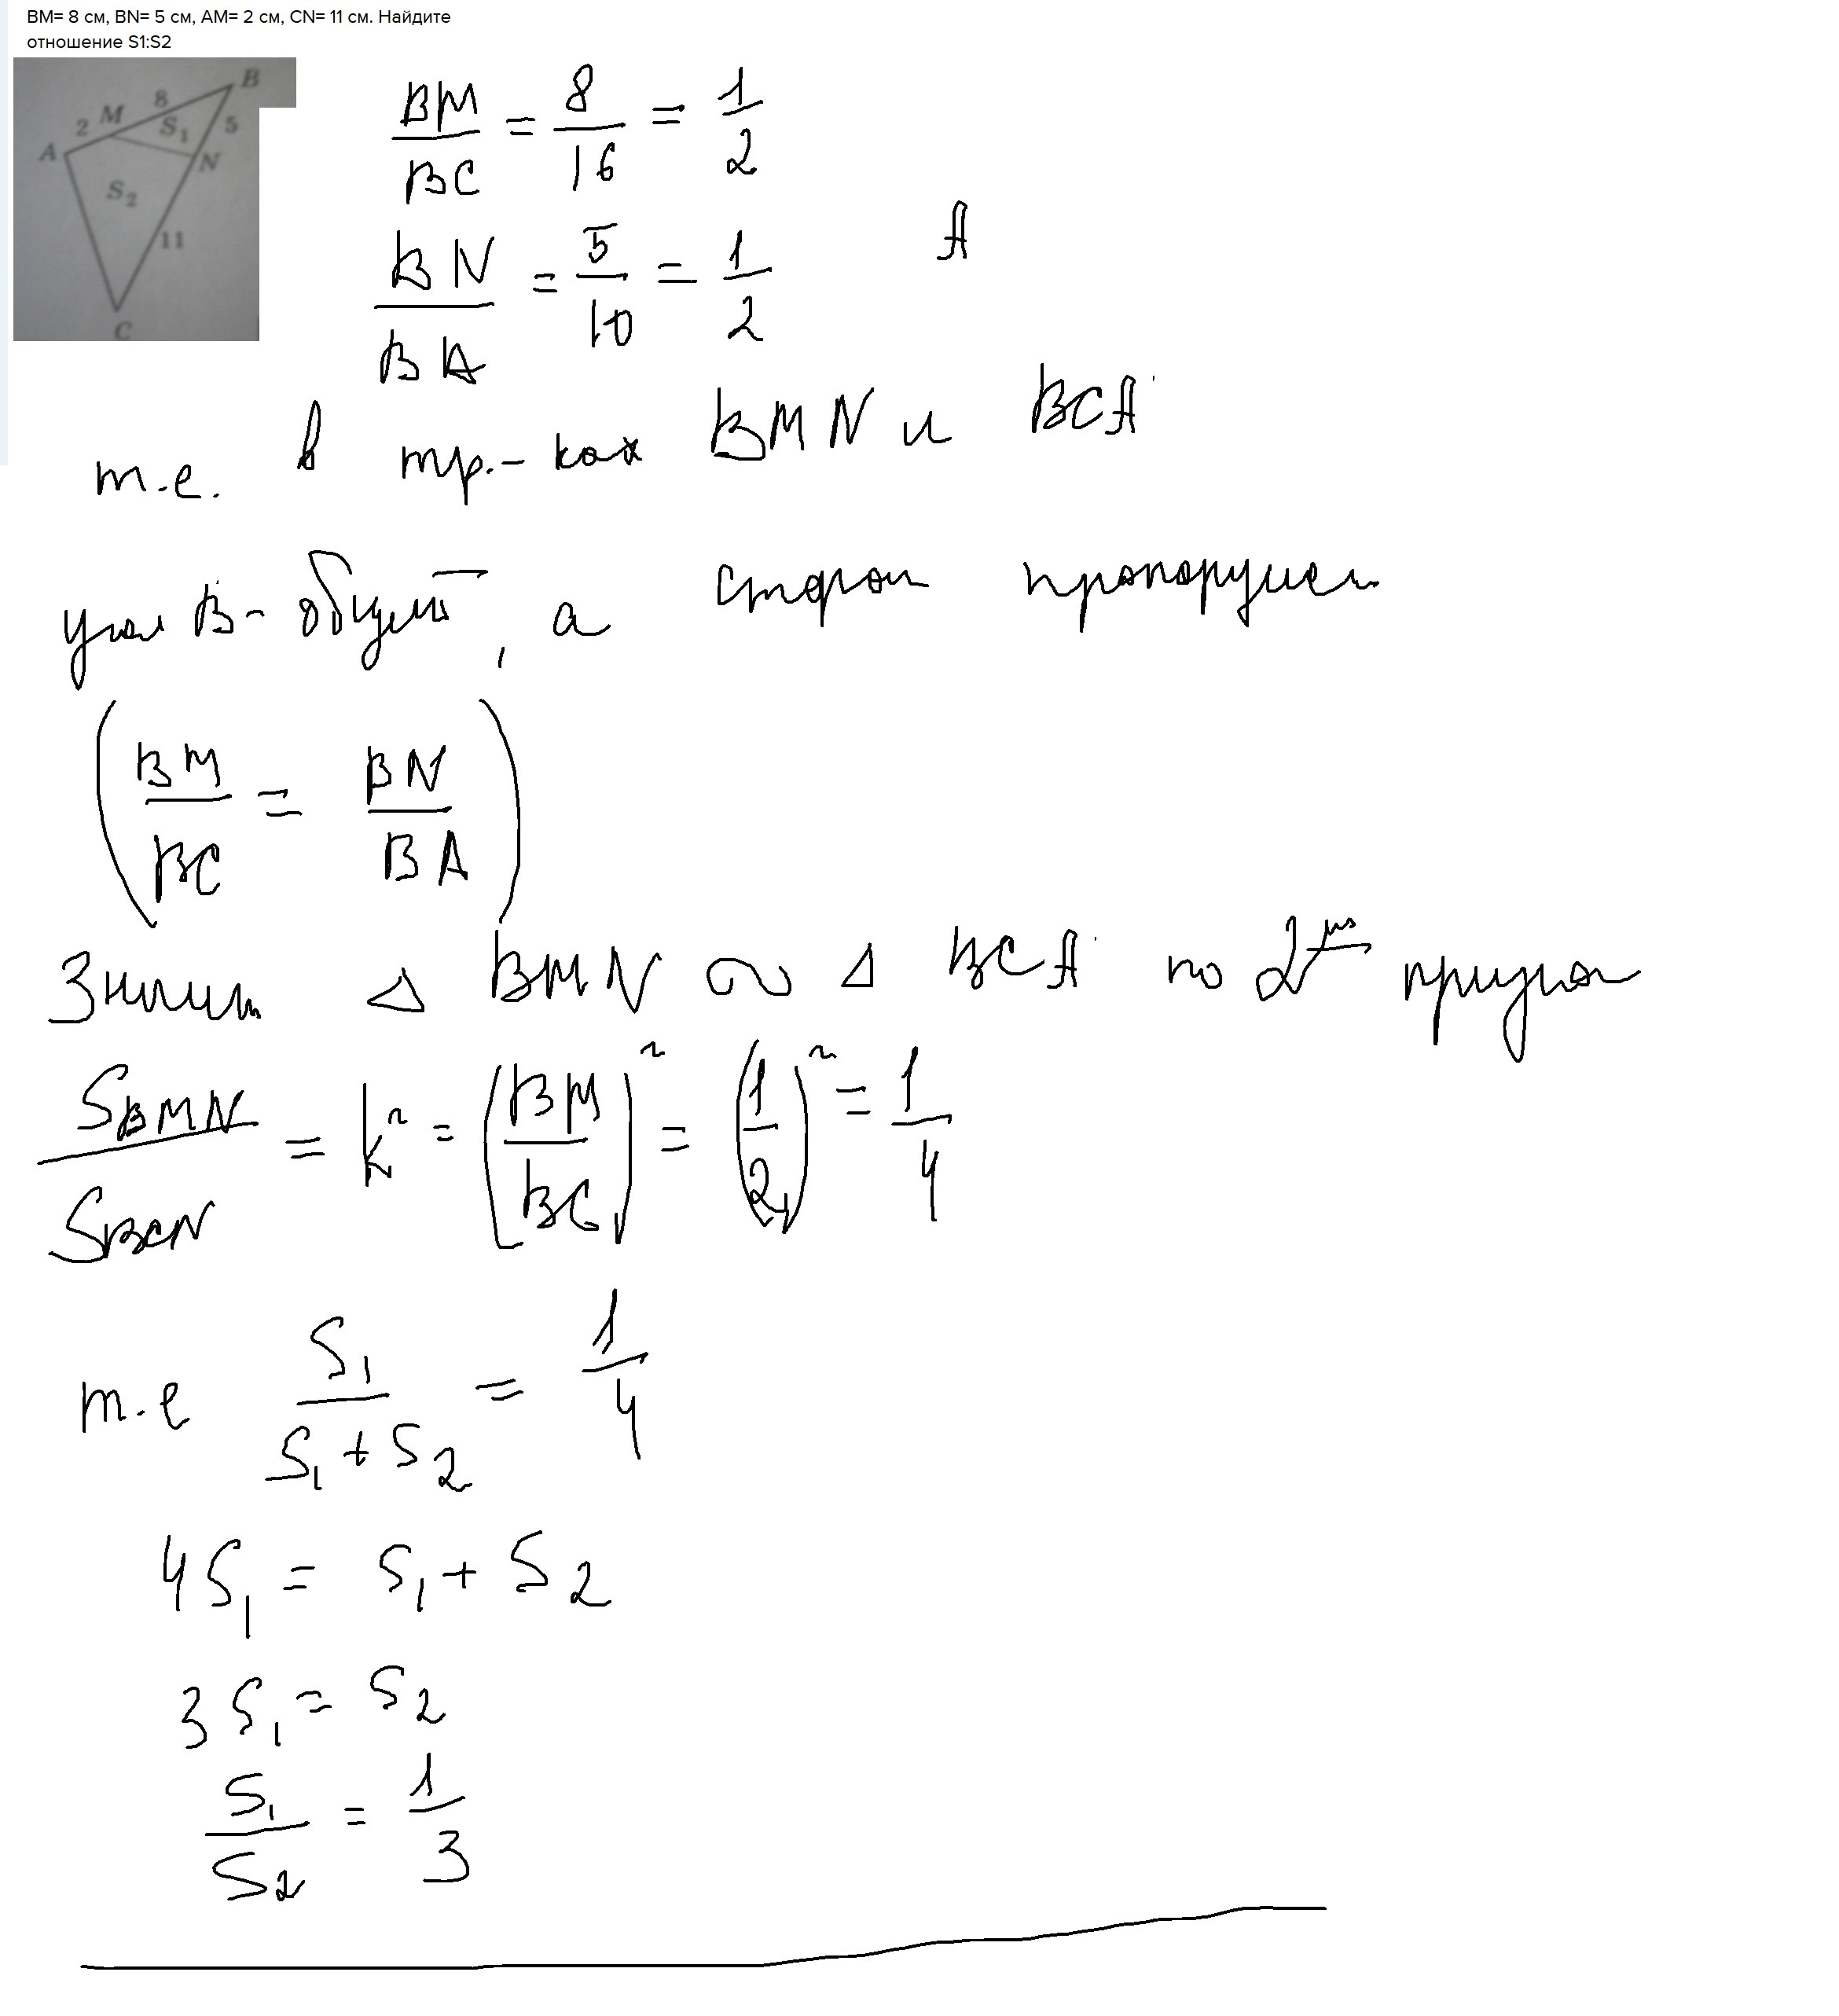 BM= 8 см, BN= 5 см, AM= 2 см, CN= 11 см. Найдите
отношение S1:S2
B
8
M
2
S₁
5
A
N
S₂
11
C
BM/BC = 8/16 = 1/2
A
BN/BA = 5/10 = 1/2
т.е. в тр.-ках BMN и BCA
угол B - общий, а сторон пропорцион
(BM/BC = BN/BA)
Значит △ BMN ∾ △ BCA по 2му признак
SBMN/SBCN = k² = (BM/BC)² = (1/2)² = 1/4
т.е S₁/S₁+S₂ = 1/4
4S₁ = S₁ + S₂
3S₁ = S₂
S₁/S₂ = 1/3